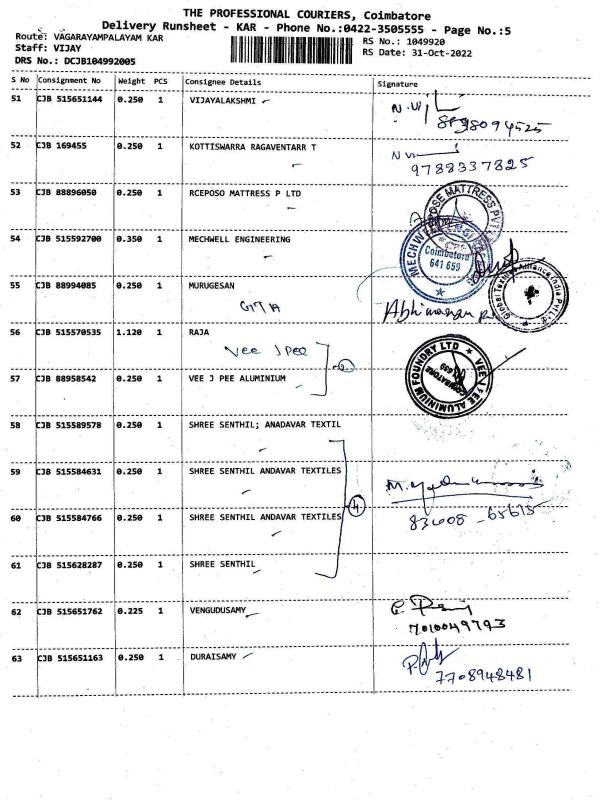 THE PROFESSIONAL COURIERS, Coimbatore
Delivery Runsheet - KAR - Phone No.:0422-3505555 - Page No.:5
Route: VAGARAYAMPALAYAM KAR
RS No.: 1049920
Staff: VIJAY
RS Date: 31-Oct-2022
DRS No.: DCJB104992005
S No Consignment No Weight PCS Consignee Details Signature
51 CJB 515651144 0.250 1 VIJAYALAKSHMI
52 CJB 169455 0.250 1 KOTTISWARRA RAGAVENTARR T
9788337825
53 CJB 88896050 0.250 1 RCEPOSO MATTRESS P LTD
54 CJB 515592700 0.350 1 MECHWELL ENGINEERING
Coimbatore
641 659
55 CJB 88994085 0.250 1 MURUGESAN
GITA
56 CJB 515570535 1.120 1 RAJA
Vee J Pee
57 CJB 88958542 0.250 1 VEE J PEE ALUMINIUM
VEE J PEE ALUMINIUM FOUNDRY LTD
58 CJB 515589578 0.250 1 SHREE SENTHIL; ANADAVAR TEXTIL
59 CJB 515584631 0.250 1 SHREE SENTHIL ANDAVAR TEXTILES
60 CJB 515584766 0.250 1 SHREE SENTHIL ANDAVAR TEXTILES
4
61 CJB 515628287 0.250 1 SHREE SENTHIL
62 CJB 515651762 0.225 1 VENGUDUSAMY
7010049793
63 CJB 515651163 0.250 1 DURAISAMY
7708948481